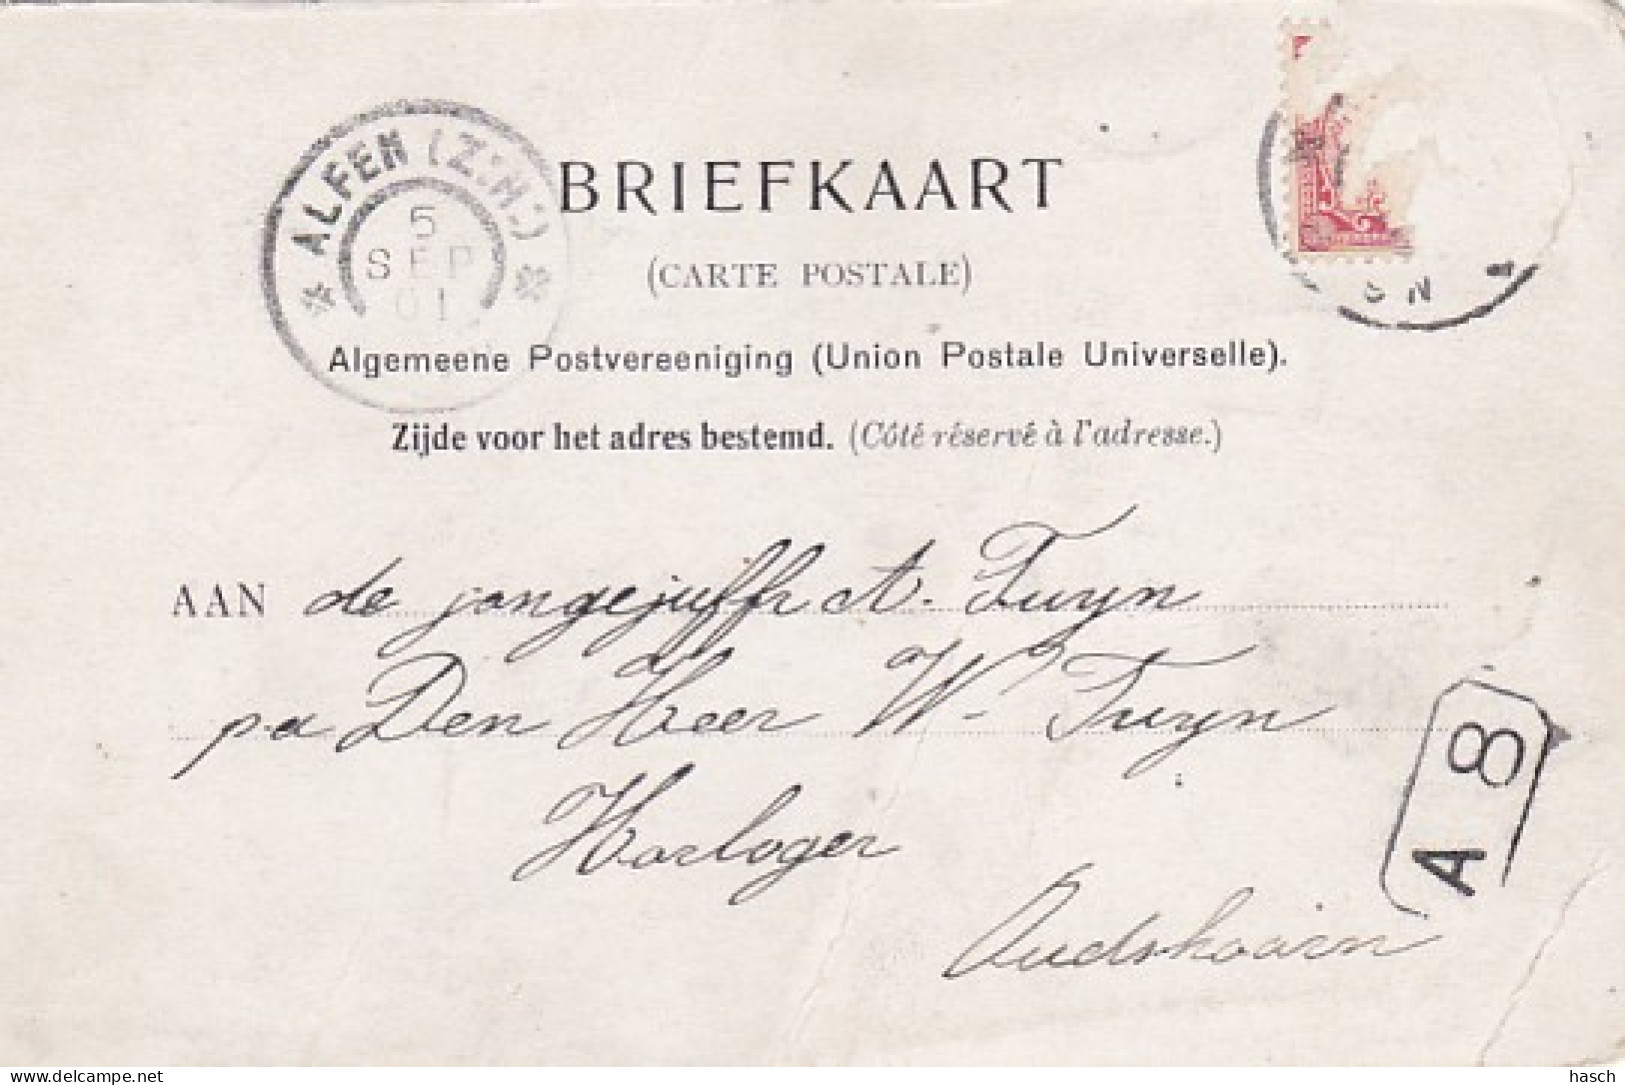 ALFEN (Z:H.)
5
SEP
01
BRIEFKAART
(CARTE POSTALE)
Algemeene Postvereeniging (Union Postale Universelle).
Zijde voor het adres bestemd. (Côté réservé à l'adresse.)
AAN de jongejuffr A. Tuyn
pa Den Heer W. Tuyn
Horloger
Oudshoorn
A 8
hasch